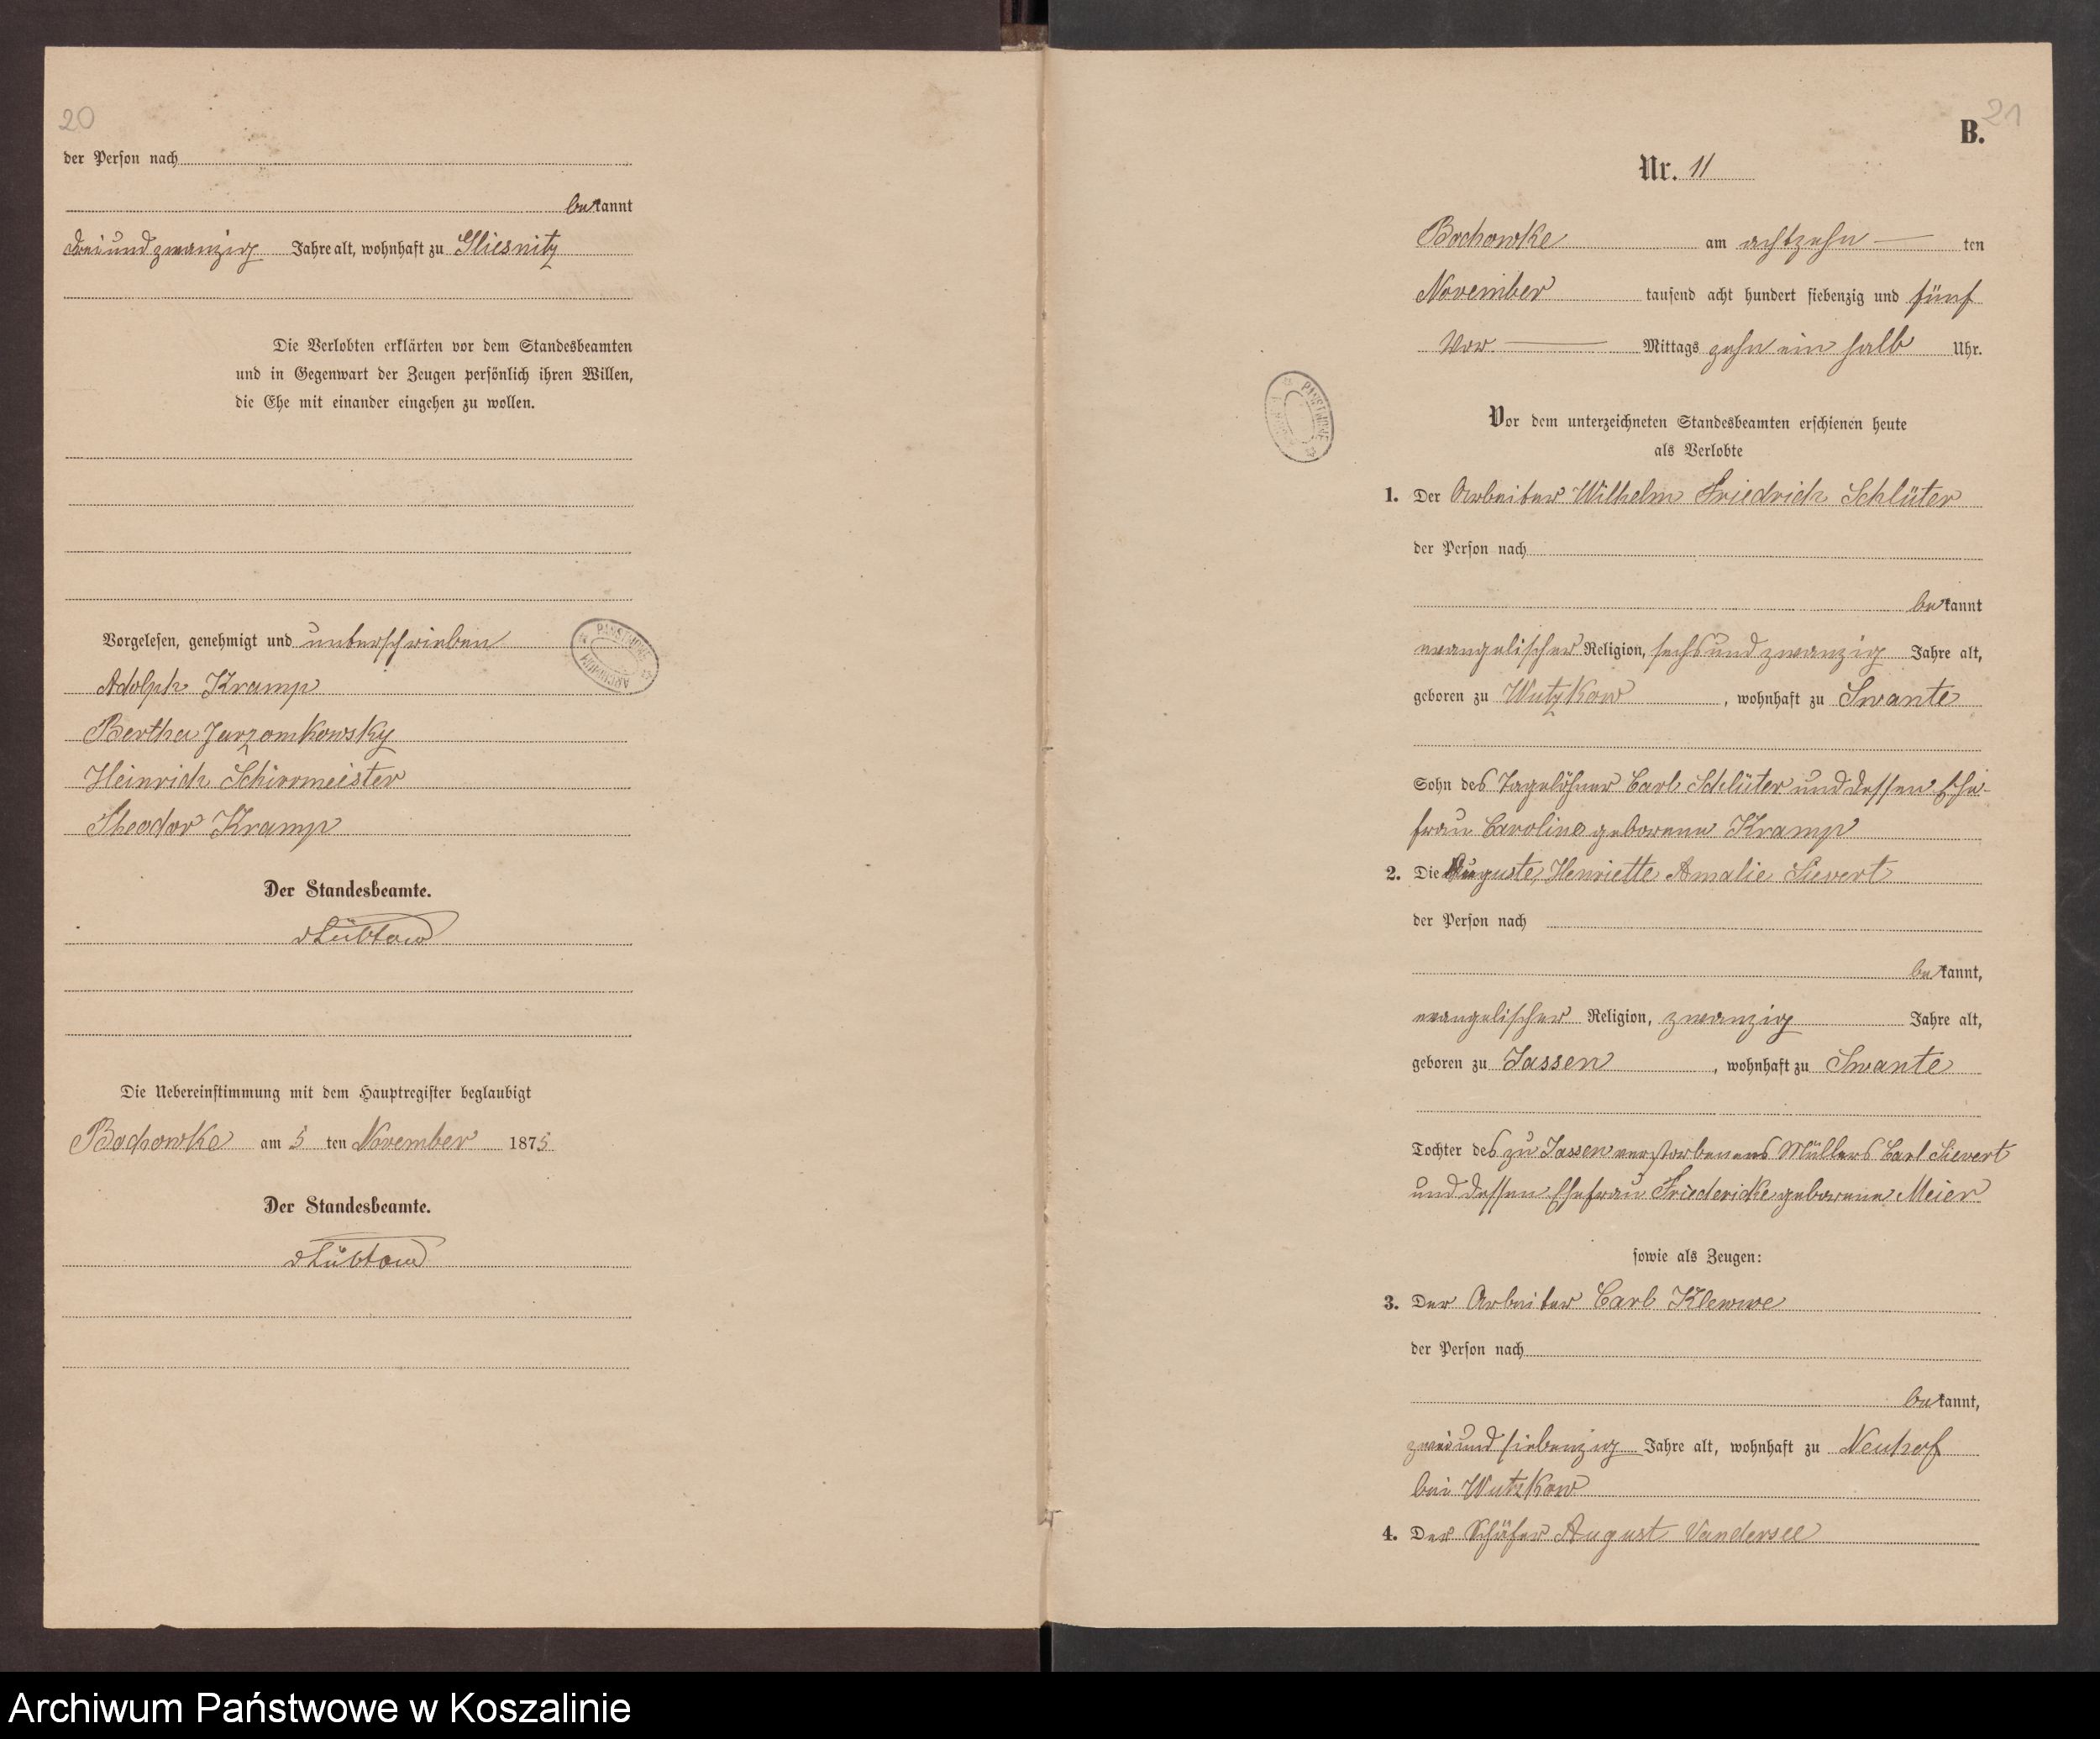 20
der Person nach
bekannt
dreiundzwanzig Jahre alt, wohnhaft zu Gliesnitz
Die Verlobten erklärten vor dem Standesbeamten
und in Gegenwart der Zeugen persönlich ihren Willen,
die Ehe mit einander eingehen zu wollen.
Vorgelesen, genehmigt und unterschrieben
Adolph Kramp
Bertha Jarzomkowsky
Heinrich Schirrmeister
Theodor Kramp
ARCHIWUM PAŃSTWOWE
Der Standesbeamte.
vLübtow
Die Uebereinstimmung mit dem Hauptregister beglaubigt
Bochowke am 5 ten November 1875
Der Standesbeamte.
vLübtow
21
B.
Nr. 11
Bochowke am achtzehn ten
November tausend acht hundert siebenzig und fünf
Vor Mittags zehn ein halb Uhr.
PAŃSTWOWE
Vor dem unterzeichneten Standesbeamten erschienen heute
als Verlobte
1. Der Arbeiter Wilhelm Friedrich Schlüter
der Person nach
bekannt
evangelischer Religion, sechsundzwanzig Jahre alt,
geboren zu Wutzkow, wohnhaft zu Swante
Sohn des Tagelöhner Carl Schlüter und dessen Ehe-
frau Caroline geborene Kramp
2. Die Auguste, Henriette Amalie Sievert
der Person nach
bekannt,
evangelischer Religion, zwanzig Jahre alt,
geboren zu Jassen, wohnhaft zu Swante
Tochter des zu Jassen verstorbenens Müllers Carl Sievert
und dessen Ehefrau Friedericke geborene Meier
sowie als Zeugen:
3. Der Arbeiter Carl Klewwe
der Person nach
bekannt,
zweiundsiebenzig Jahre alt, wohnhaft zu Neuhof
bei Wutzkow
4. Der Schäfer August Vandersee
Archiwum Państwowe w Koszalinie